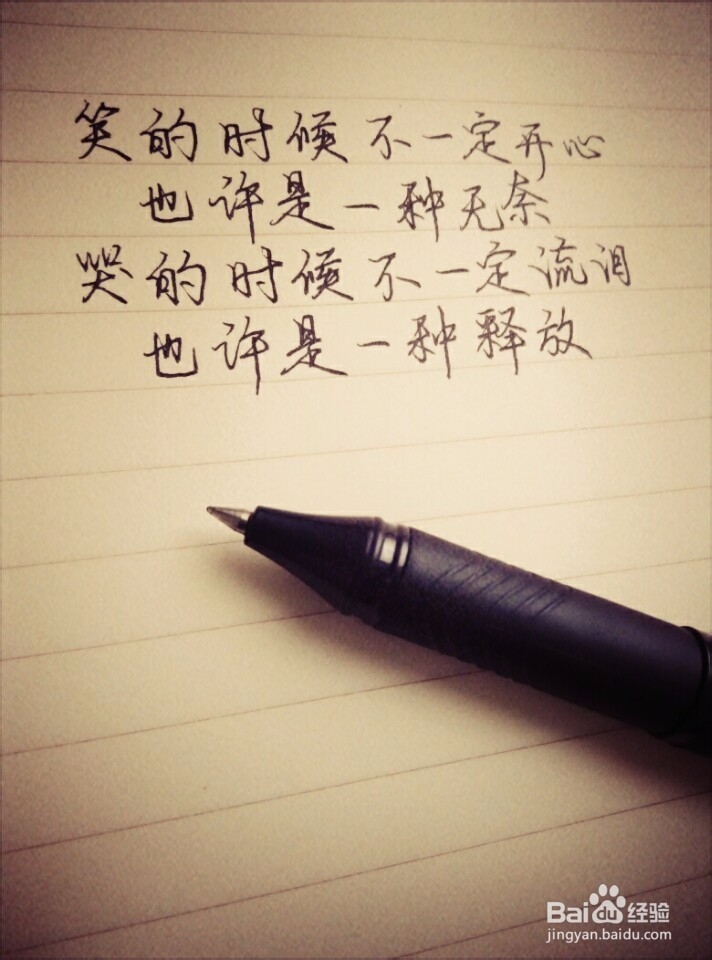 笑的时候不一定开心
也许是一种无奈
哭的时候不一定流泪
也许是一种释放
Baidu经验
jingyan.baidu.com